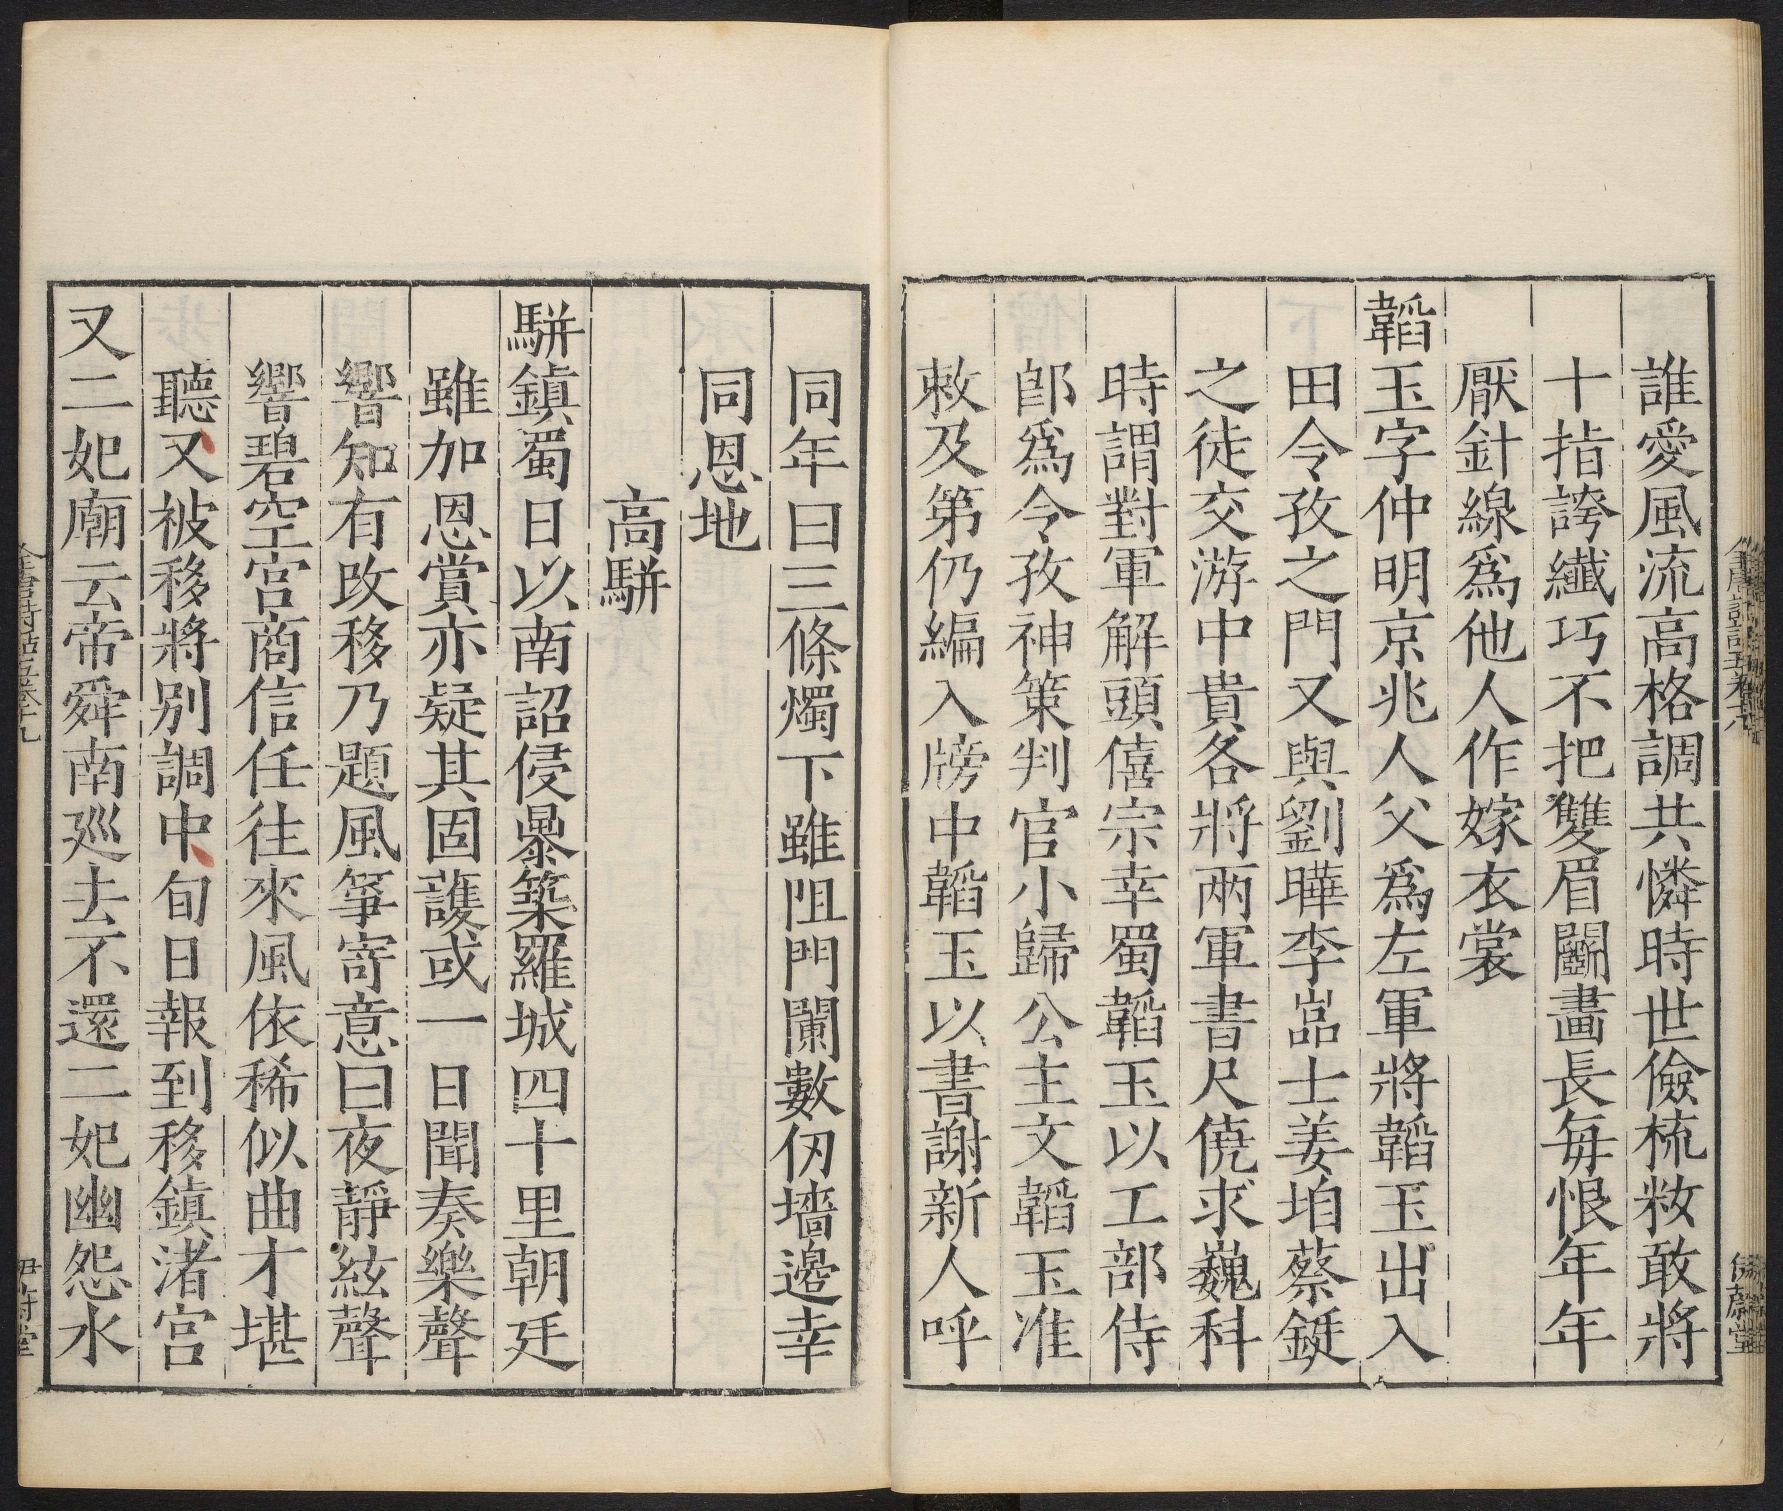 誰愛風流高格調共憐時世儉梳敉敢將
十指誇纖巧不把雙眉鬭畫長每恨年年
厭針線爲他人作嫁衣裳
韜玉字仲明京兆人父爲左軍將韜玉出入
田令孜之門又與劉曄李嵓士姜垍蔡鋋
之徒交游中貴各將兩軍書尺僥求巍科
時謂對軍解頭僖宗幸蜀韜玉以工部侍
郎爲令孜神策判官小歸公主文韜玉准
敕及第仍編入牓中韜玉以書謝新人呼
同年曰三條燭下雖阻門闌數仞墻邊幸
同恩地
高駢
駢鎮蜀日以南詔侵暴築羅城四十里朝廷
雖加恩賞亦疑其固護或一日聞奏樂聲
響知有改移乃題風箏寄意曰夜靜絃聲
響碧空宮商信任往來風依稀似曲才堪
聽又被移將別調中旬日報到移鎮渚宮
又二妃廟云帝舜南廵去不還二妃幽怨水